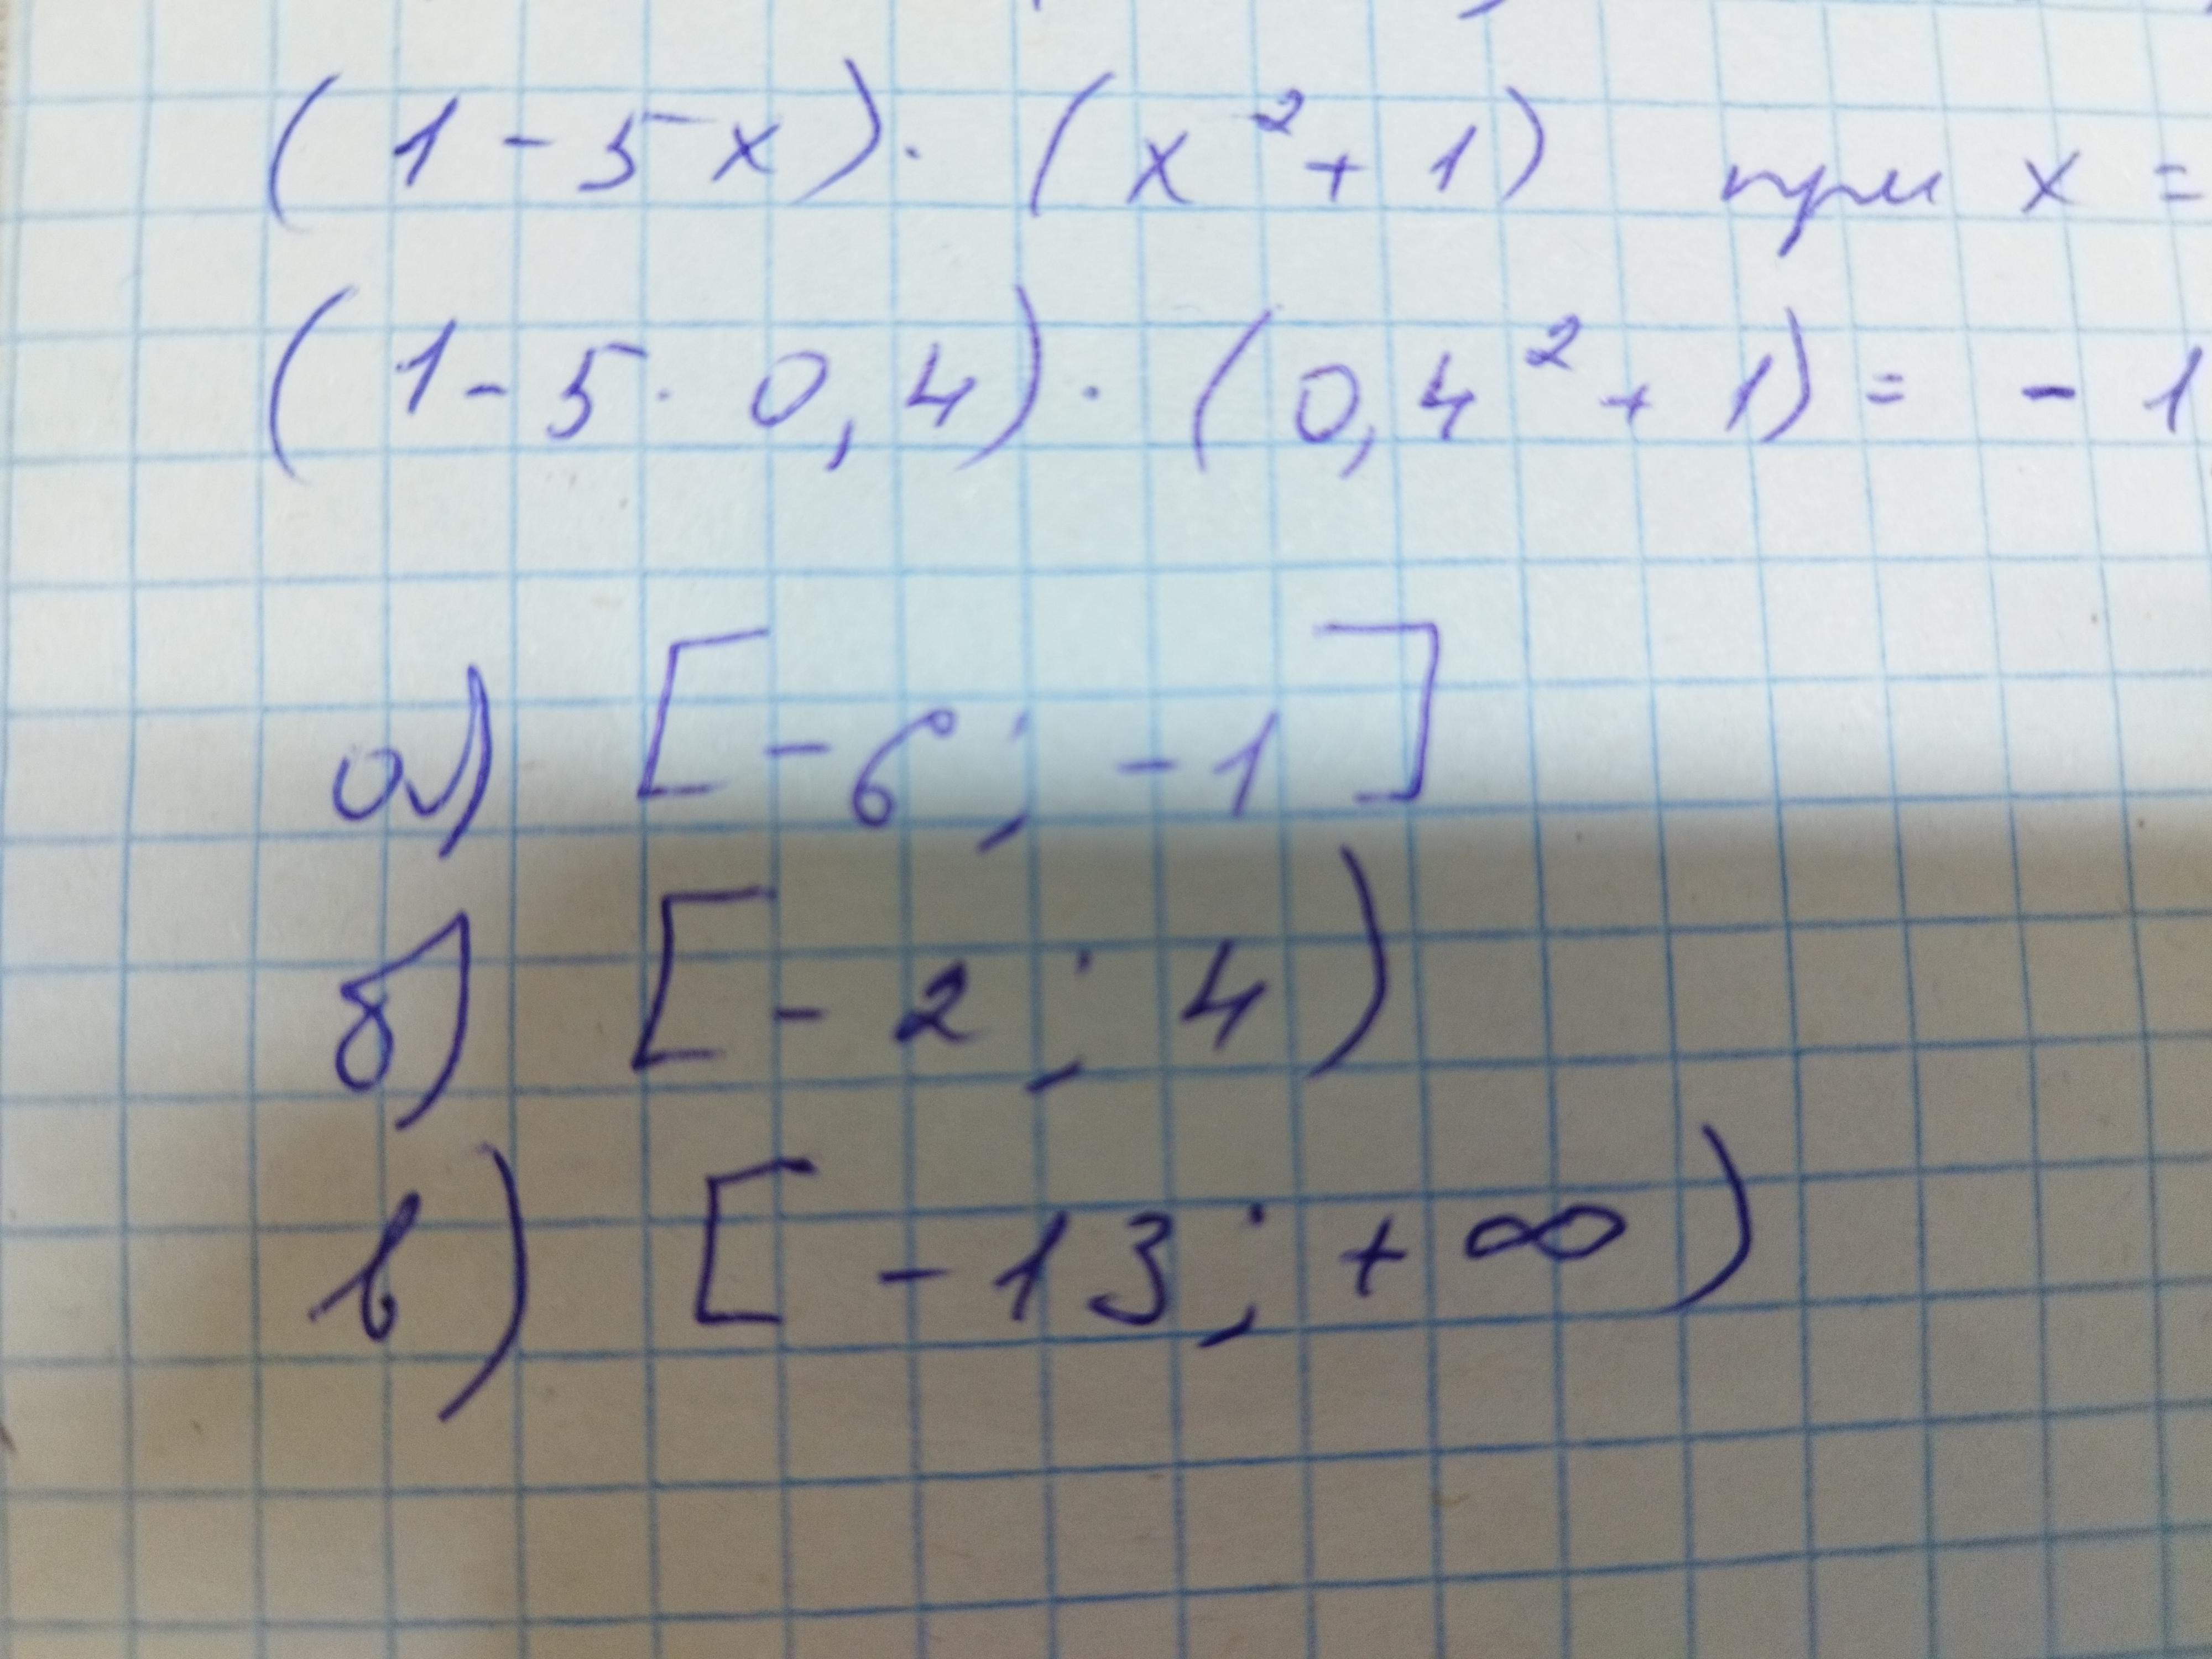 (1 - 5x) · (x² + 1) при x =
(1 - 5 · 0,4) · (0,4² + 1) = - 1
а) [-6; -1]
б) [-2; 4)
в) [-13; +∞)